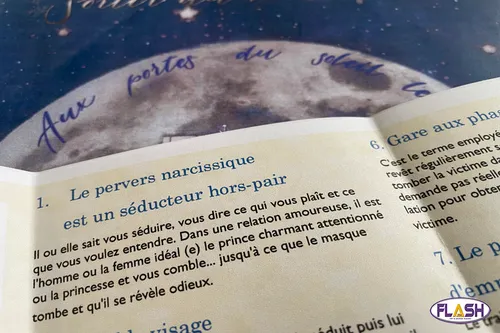 Aux portes du soleil
1. Le pervers narcissique
est un séducteur hors-pair
Il ou elle sait vous séduire, vous dire ce qui vous plaît et ce
que vous voulez entendre. Dans une relation amoureuse, il est
l'homme ou la femme idéal (e) le prince charmant attentionné
ou la princesse et vous comble... jusqu'à ce que le masque
tombe et qu'il se révèle odieux.
visage
6. Gare aux
C'est le terme employ
revêt régulièrement s
tomber la victime d
demande pas réell
lation pour obte
victime.
7. Le p
d'em
séduit puis lui
FLASH